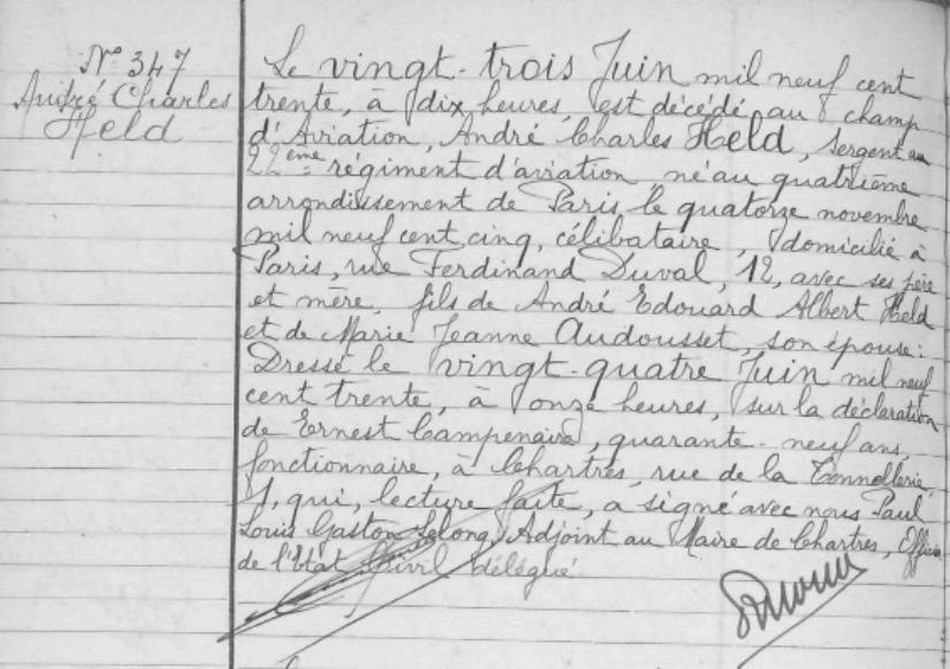 N° 347
André Charles
Held
Le vingt-trois Juin mil neuf cent
trente, à dix heures, est décédé au champ
d'Aviation, André Charles Held, sergent au
22ème régiment d'aviation, né au quatrième
arrondissement de Paris le quatorze novembre
mil neuf cent cinq, célibataire, domicilié à
Paris, rue Ferdinand Duval, 12, avec ses père
et mère, fils de André Edouard Albert Held
et de Marie Jeanne Audousset, son épouse:
Dressé le vingt-quatre Juin mil neuf
cent trente, à onze heures, sur la déclaration
de Ernest Campenaire, quarante-neuf ans,
fonctionnaire, à Chartres, rue de la Tonnellerie,
1, qui, lecture faite, a signé avec nous Paul
Louis Gaston Lelong, Adjoint au Maire de Chartres, Officier
de l'Etat Civil délégué